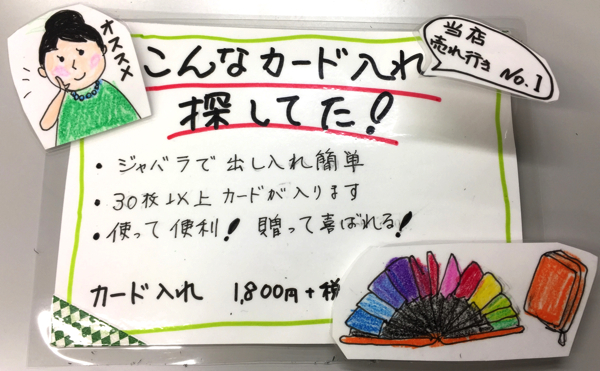 オススメ
こんなカード入れ
探してた!
当店
売れ行き No.1
・ジャバラで出し入れ簡単
・30枚以上カードが入ります
・使って便利! 贈って喜ばれる!
カード入れ 1,800円+税